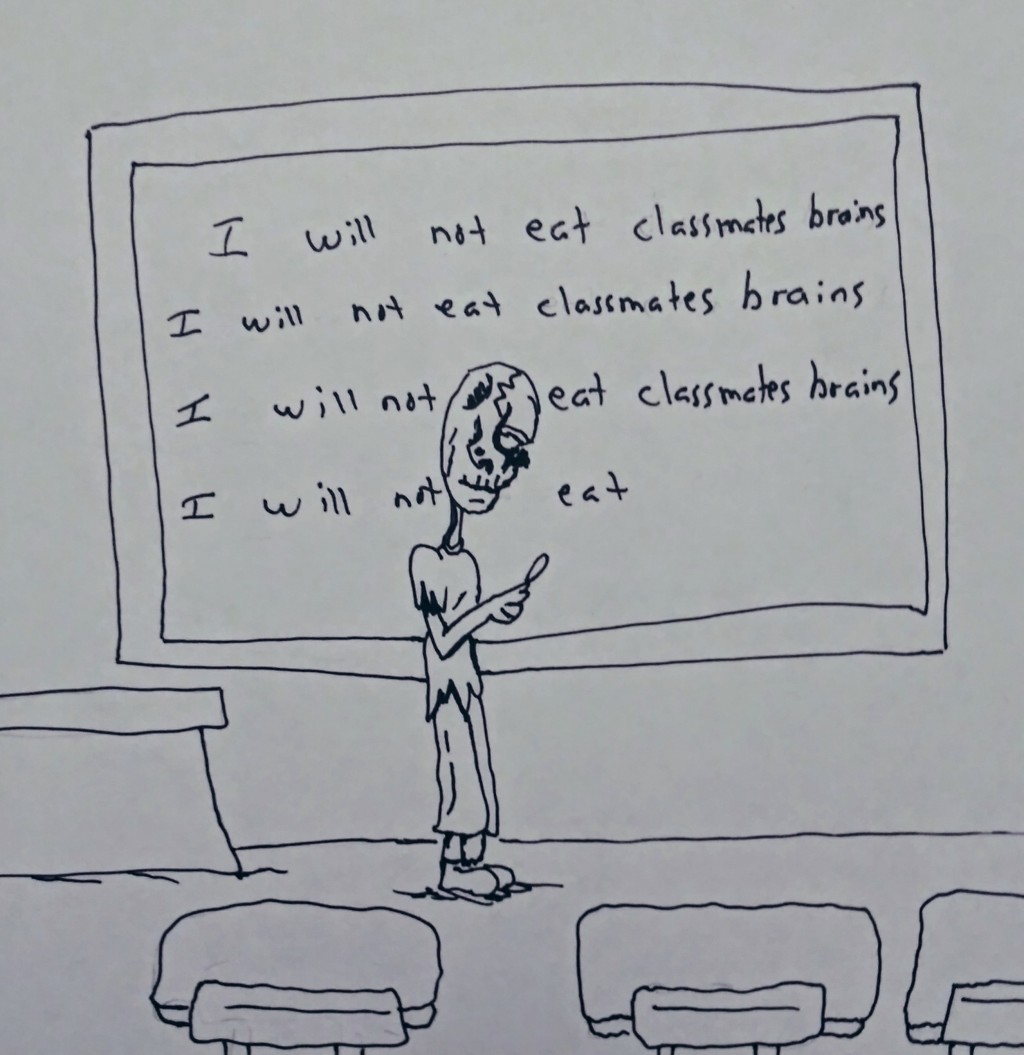 I will not eat classmates brains
I will not eat classmates brains
I will not eat classmates brains
I will not eat